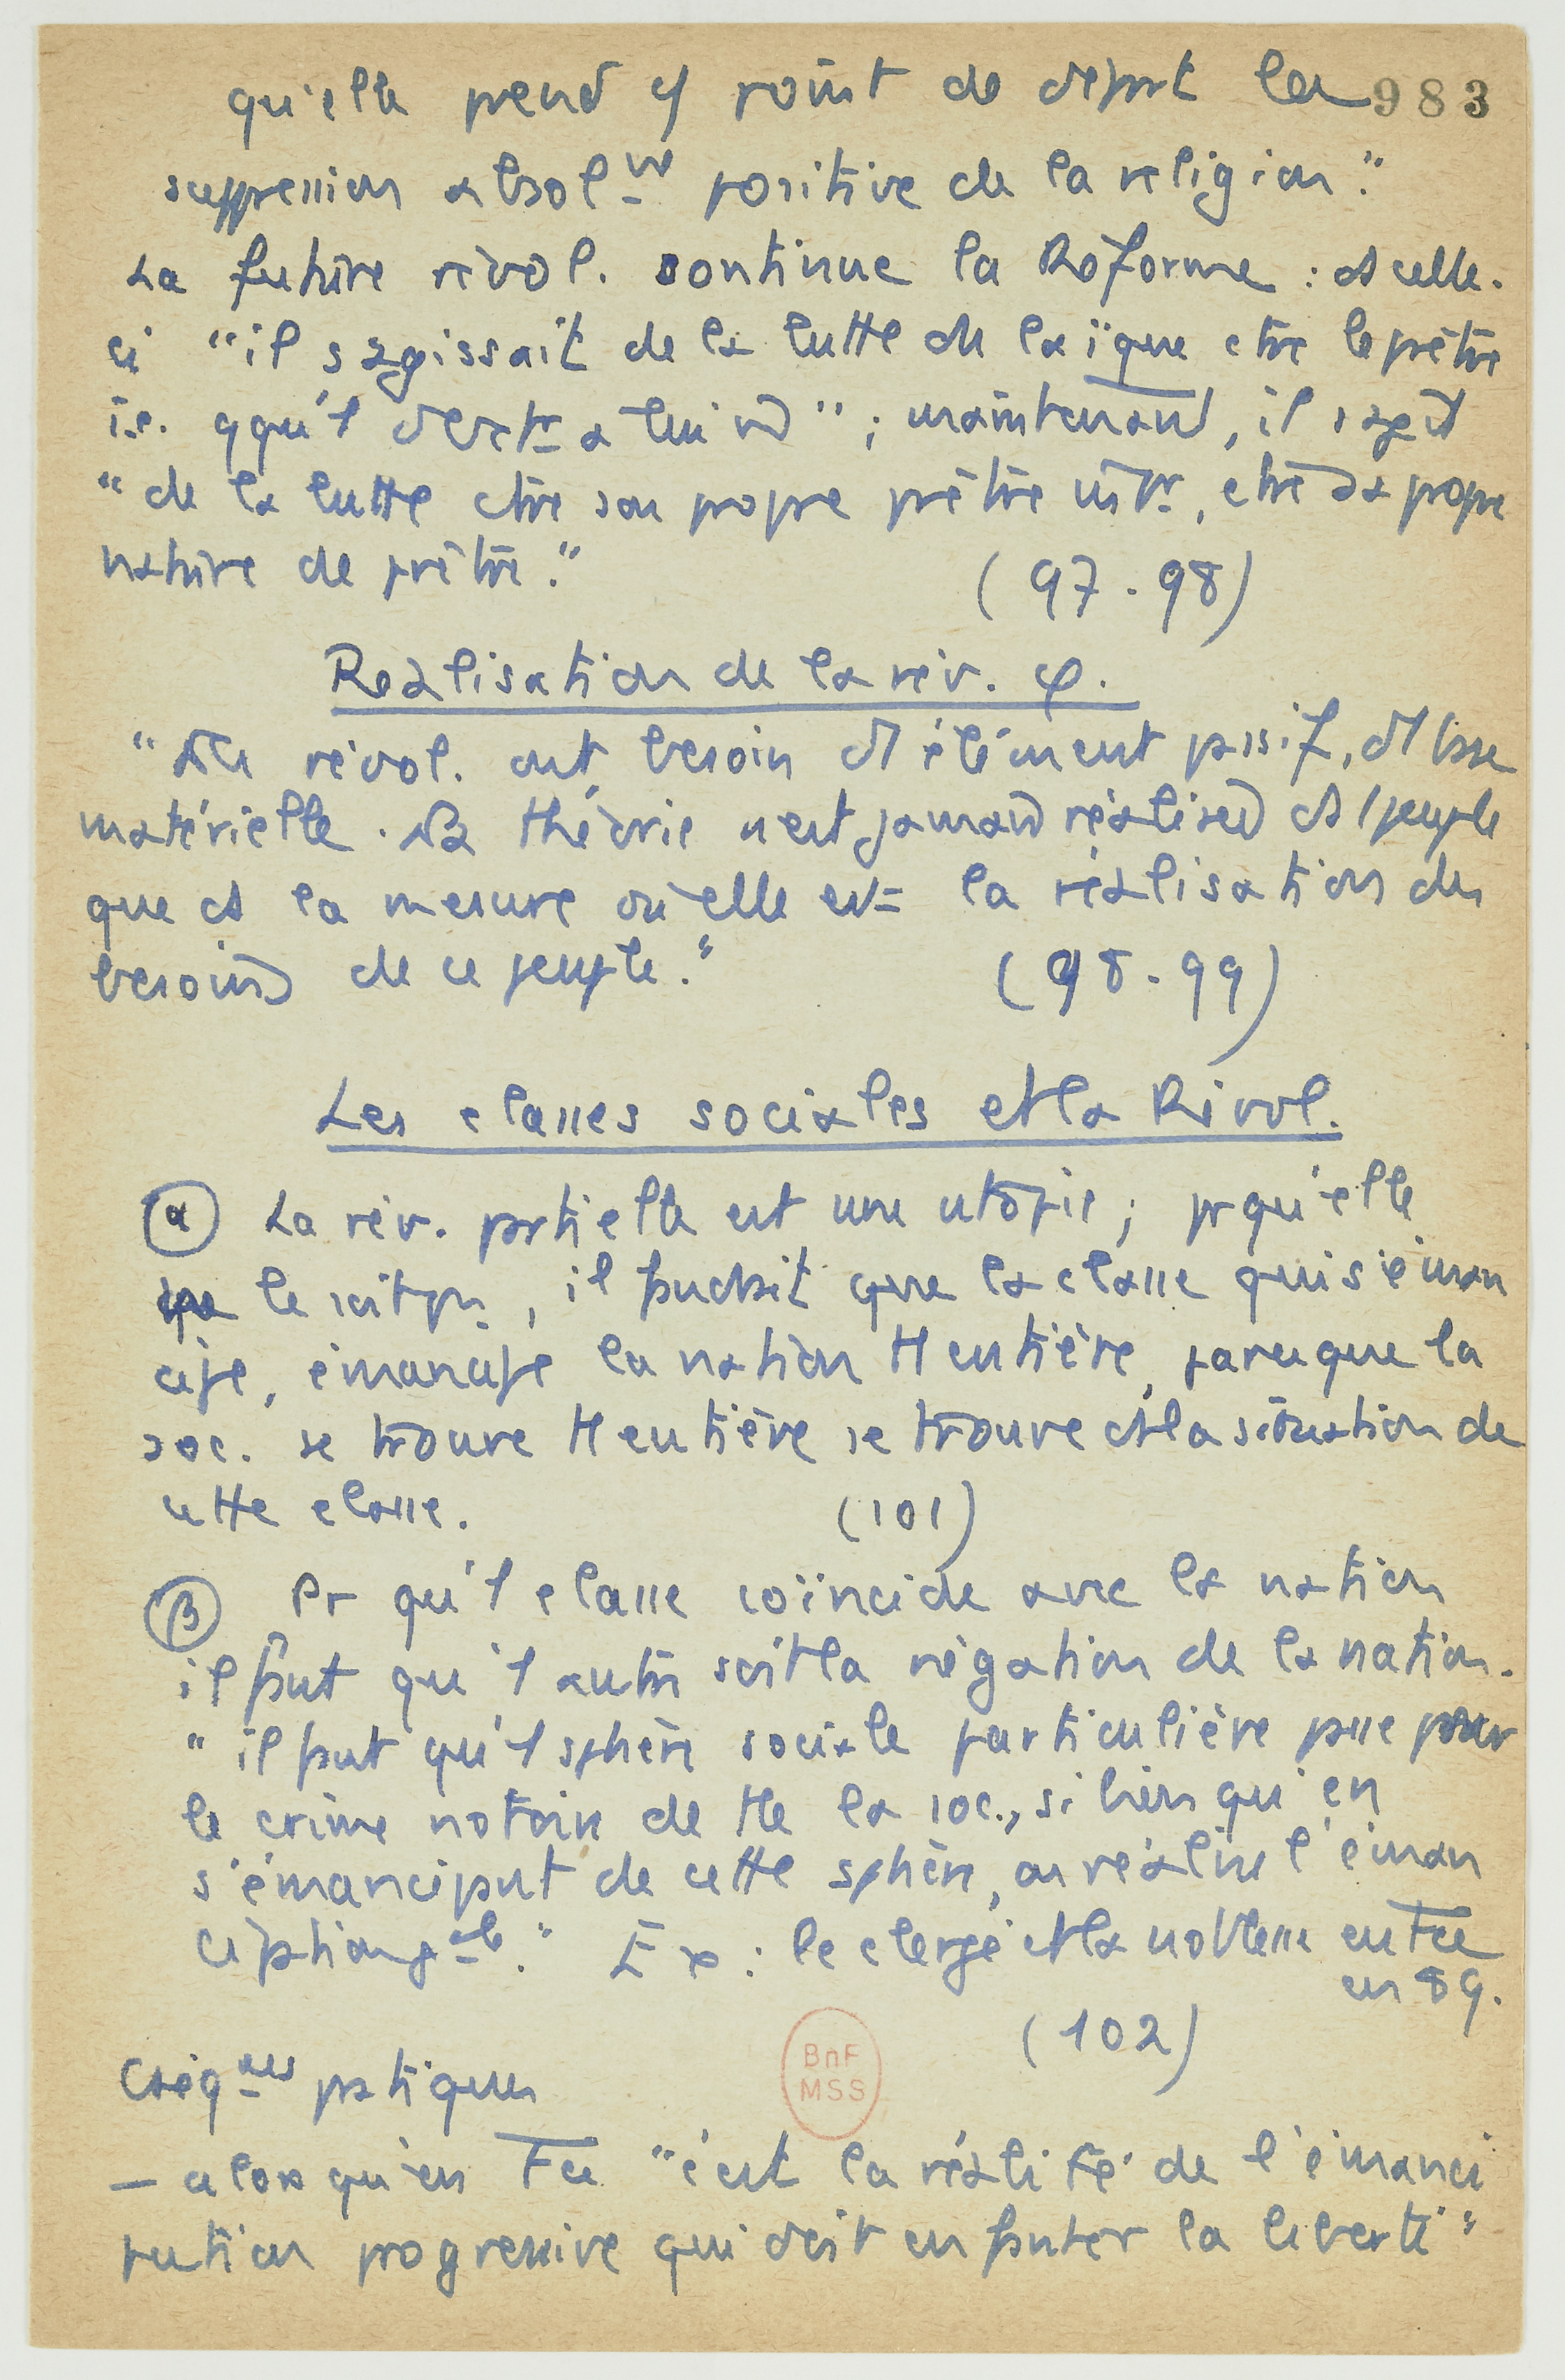 qu'elle prend cō point de départ la 983
suppression absol^ue positive de la religion."
La future révol. continue la Réforme : ds celle-
ci "il s'agissait de la lutte du laïque ctre le prêtre
i.e. qqu'1 d'extr à lui m̂" ; maintenant, il s'agit
"de la lutte ctre son propre prêtre intr, ctre sa propre
nature de prêtre."
(97-98)
Réalisation de la rév. φ.
"Les révol. ont besoin d'1 élément passif, d'1 base
matérielle. La théorie n'est jamais réalisée ds 1 peuple
que ds la mesure où elle est la réalisation des
besoins de ce peuple."
(98-99)
Les classes sociales et la Révol.
(α) La rév. partielle est une utopie ; pr qu'elle
le soit pas, il faudrait que la classe qui s'éman
cipe, émancipe la nation tt entière, parce que la
soc. se trouve tt entière se trouve ds la situation de
cette classe.
(101)
(β) Pr qu'1 classe coïncide avec la nation
il faut qu'1 autre soit la négation de la nation.
"il faut qu'1 sphère sociale particulière passe pour
le crime notoire de tte la soc., si bien qu'en
s'émancipant de cette sphère, on réalise l'éman
cipation g^ale." Ex : le clergé et la noblesse en Fce
en 89.
(102)
BnF
MSS
Cséq^ces pratiques
– alors qu'en Fce "c'est la réalité de l'émanci
pation progressive qui doit enfanter la liberté"